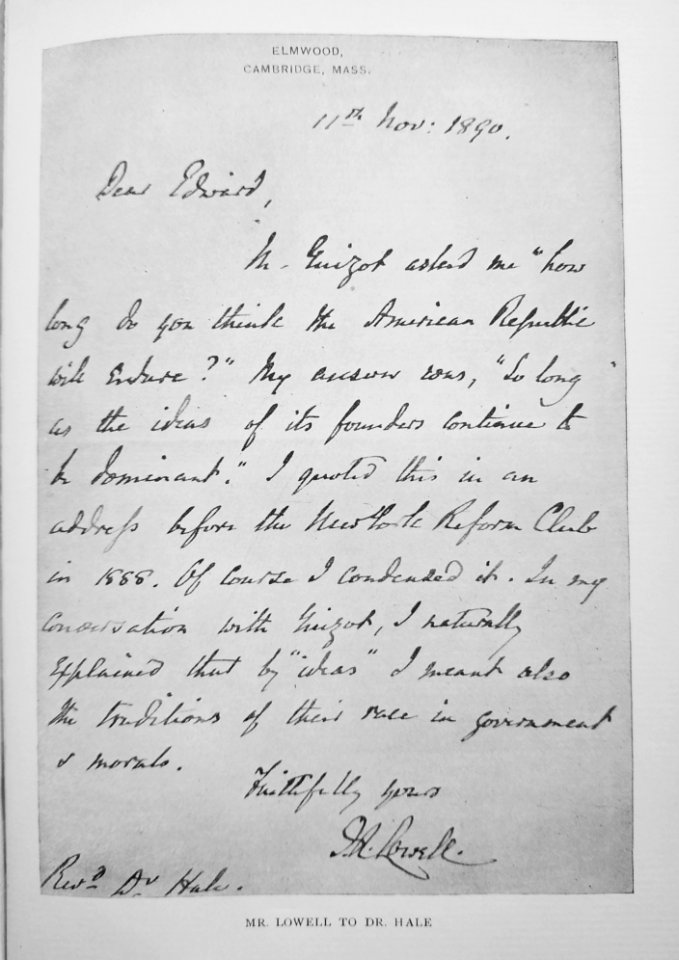 ELMWOOD,
CAMBRIDGE, MASS.
11th Nov: 1890.
Dear Edward,
M. Guizot asked me "how
long do you think the American Republic
will endure?" My answer was, "So long
as the ideas of its founders continue to
be dominant." I quoted this in an
address before the New York Reform Club
in 1888. Of course I condensed it. In my
conversation with Guizot, I naturally
explained that by "ideas" I meant also
the traditions of their race in government
& morals.
Faithfully yours
J. R. Lowell.
Revd Dr Hale.
MR. LOWELL TO DR. HALE